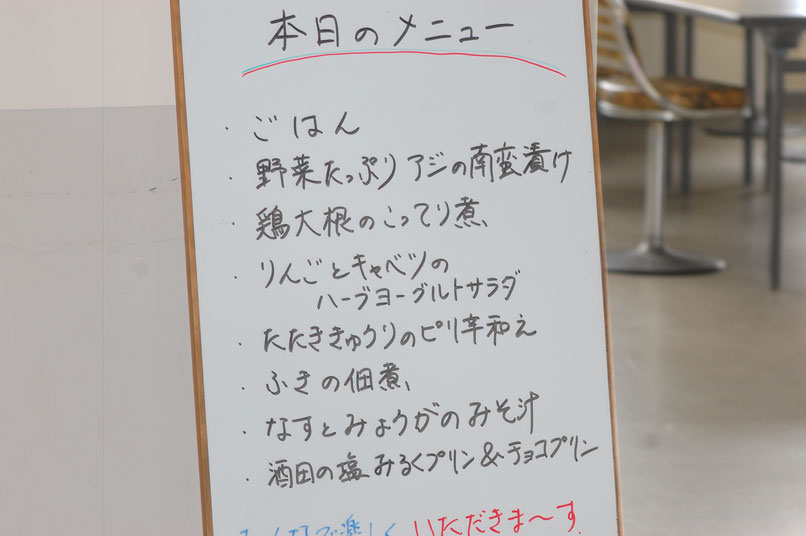 本日のメニュー
・ごはん
・野菜たっぷりアジの南蛮漬け
・鶏大根のこってり煮
・りんごとキャベツの
ハーブヨーグルトサラダ
・たたききゅうりのピリ辛和え
・ふきの佃煮
・なすとみょうがのみそ汁
・酒田の塩みるくプリン&チョコプリン
楽しく いただきま〜す